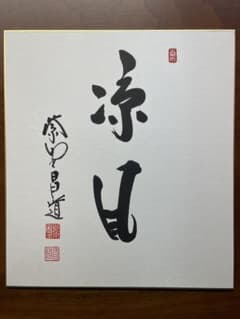 涼月
紫野昌道